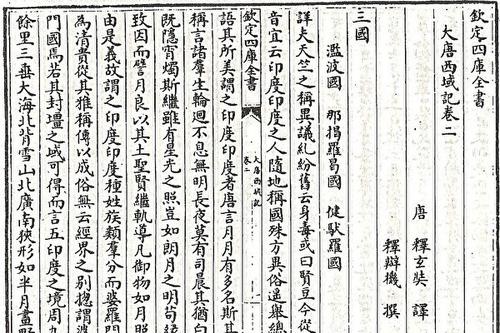 欽定四庫全書
大唐西域記卷二
唐 釋玄奘 譯
釋辯機 撰
三國
濫波國 那揭羅曷國 健馱羅國
詳夫天竺之稱異議糺紛舊云身毒或曰賢豆今從
音宜云印度印度之人隨地稱國殊方異俗遥舉總
欽定四庫全書
大唐西域記
卷二
一
語其所美謂之印度印度者唐言月月有多名斯其
稱言諸羣生輪迴不息無明長夜莫有司晨其猶白
既隱宵燭斯繼雖有星光之照豈如朗月之明苟
致因而譬月良以其土聖賢繼軌導凡御物如月照
由是義故謂之印度印度種姓族類羣分而婆羅門
為清貴從其雅稱傳以成俗無云經界之別揔謂婆
門國焉若其封壃之域可得而言五印度之境周九
餘里三垂大海北背雪山北廣南狹形如半月畫野